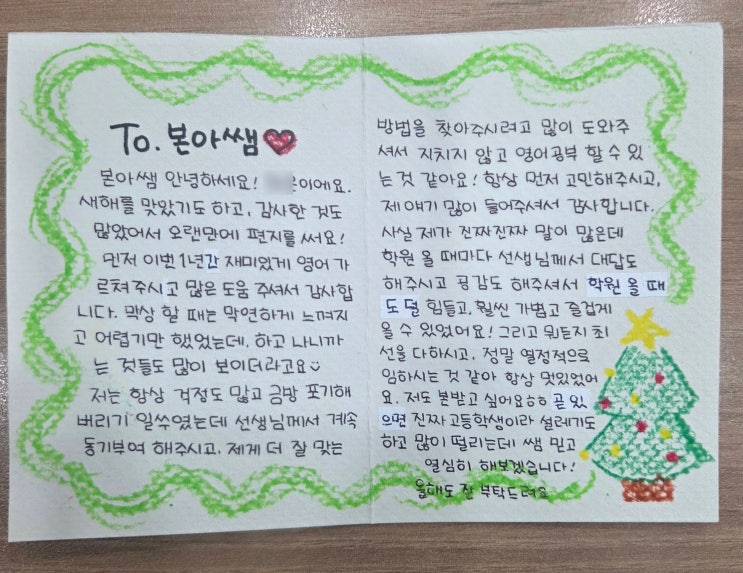 To. 본아쌤
본아쌤 안녕하세요! 이에요.
새해를 맞았기도 하고, 감사한 것도
많았어서 오랜만에 편지를 써요!
먼저 이번 1년간 재미있게 영어 가
르쳐 주시고 많은 도움 주셔서 감사합
니다. 막상 할 때는 막연하게 느껴지
고 어렵기만 했었는데, 하고 나니까
는 것들도 많이 보이더라고요
저는 항상 걱정도 많고 금방 포기해
버리기 일쑤였는데 선생님께서 계속
동기부여 해주시고, 제게 더 잘 맞는
방법을 찾아주시려고 많이 도와주
셔서 지치지 않고 영어공부 할 수 있
는 것 같아요! 항상 먼저 고민해주시고,
제 얘기 많이 들어주셔서 감사합니다.
사실 제가 진짜진짜 말이 많은데
학원 올 때마다 선생님께서 대답도
해주시고 공감도 해주셔서 학원 올 때
도 덜 힘들고, 훨씬 가볍고 즐겁게
올 수 있었어요! 그리고 뭐든지 최
선을 다하시고, 정말 열정적으로
임하시는 것 같아 항상 멋있었어
요. 저도 본받고 싶어요ㅎㅎ 곧 있
으면 진짜 고등학생이라 설레기도
하고 많이 떨리는데 쌤 믿고
열심히 해보겠습니다!
올해도 잘 부탁드려요